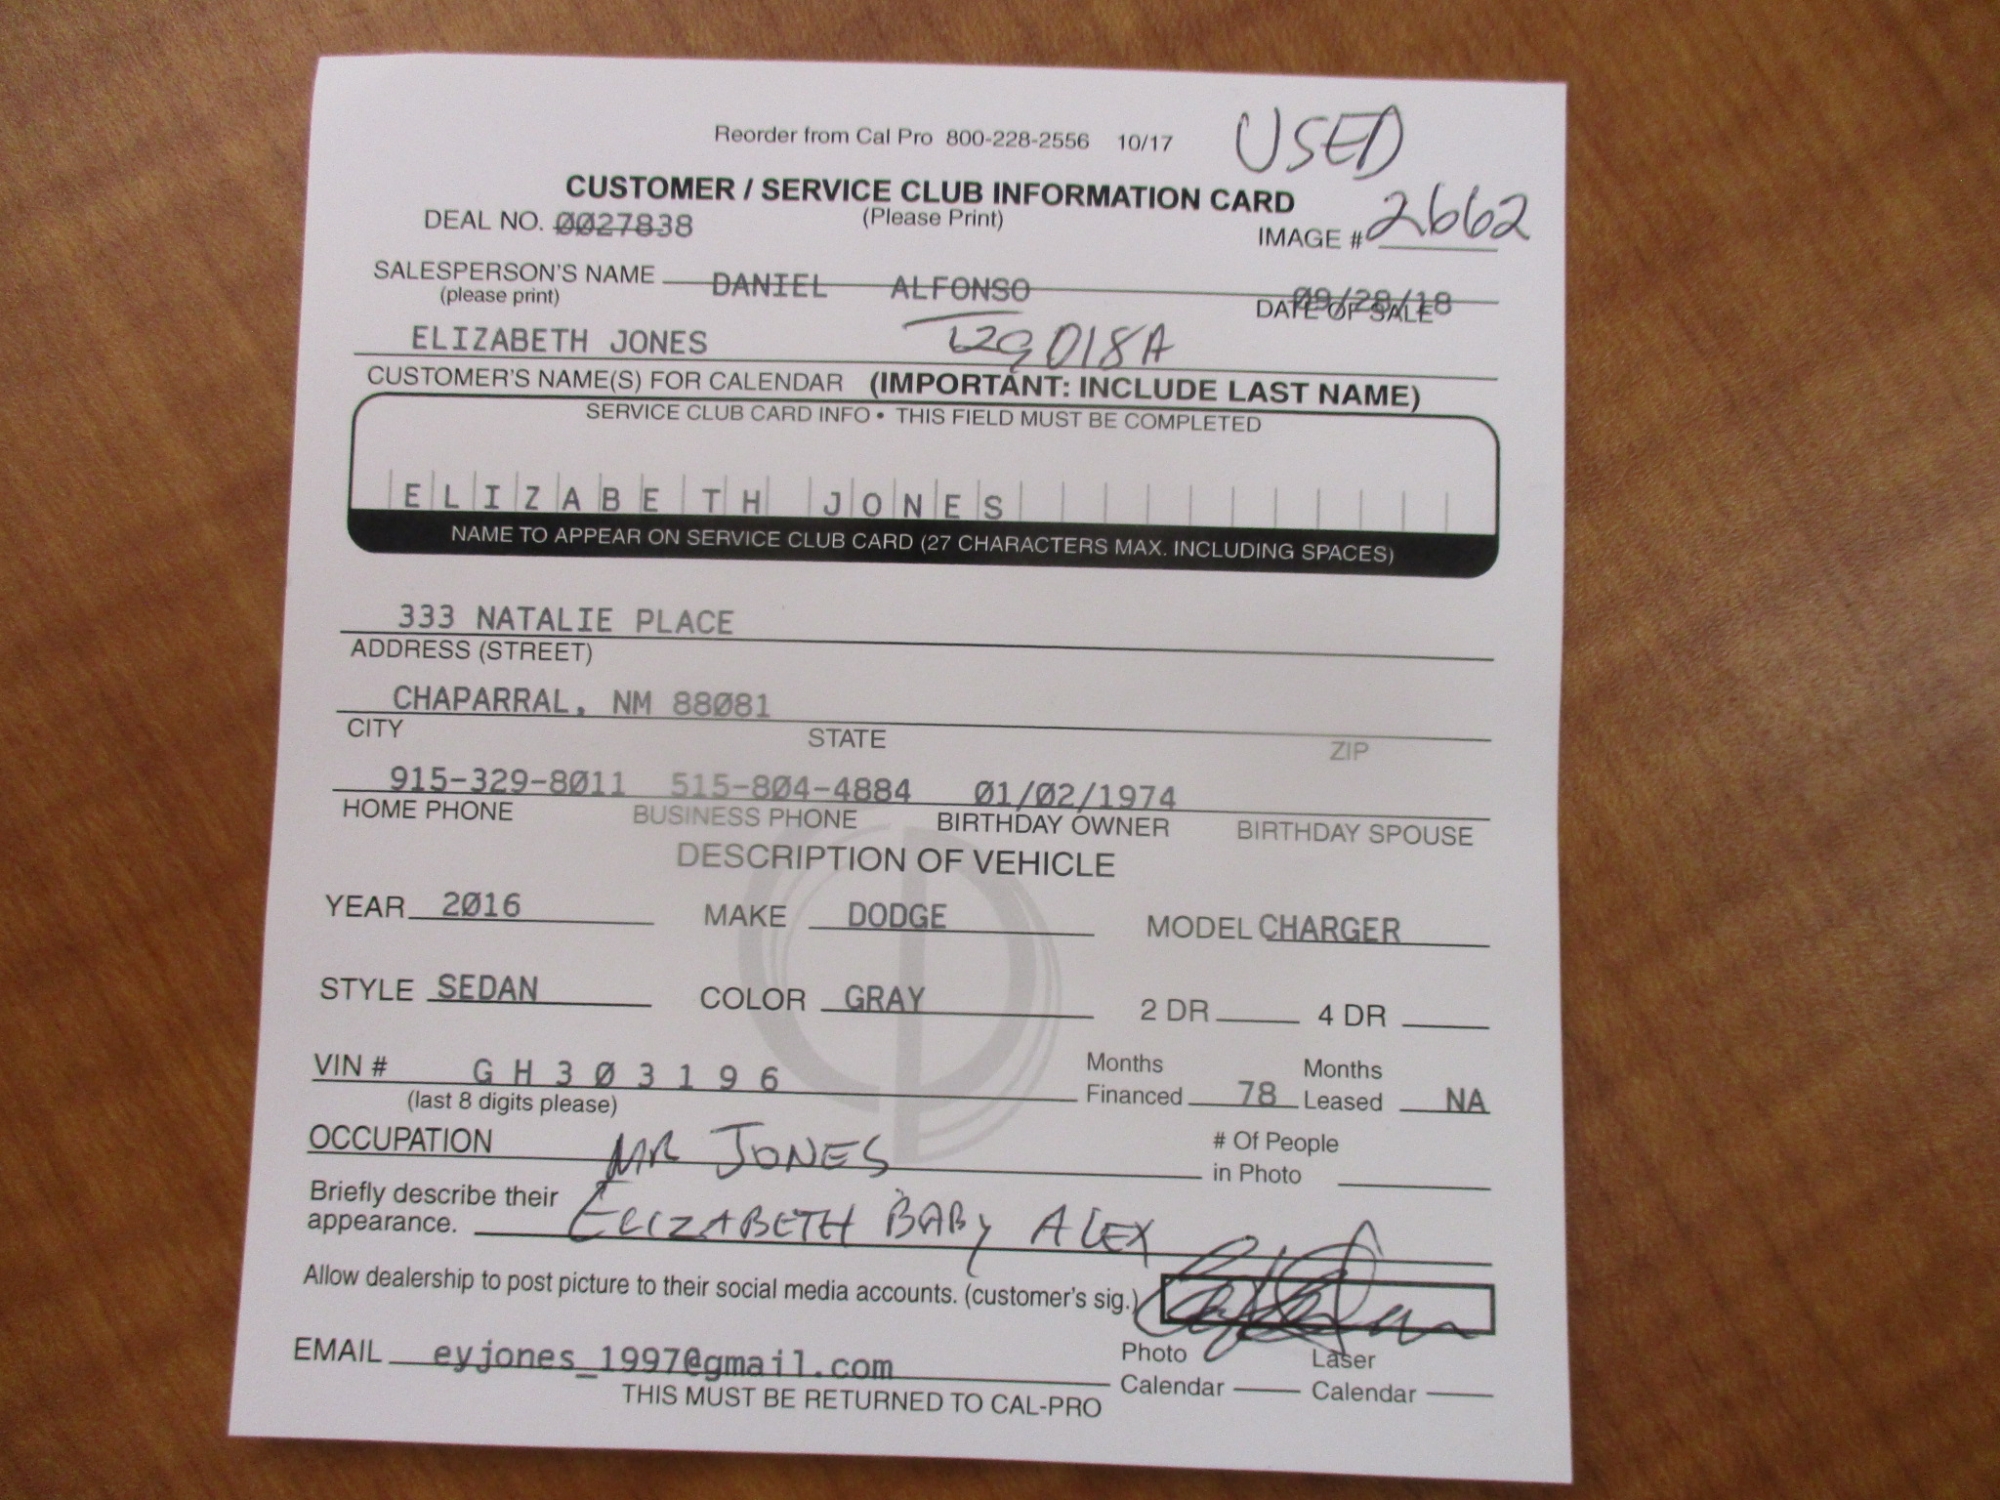 USED
Reorder from Cal Pro 800-228-2556 10/17
CUSTOMER / SERVICE CLUB INFORMATION CARD
(Please Print)
DEAL NO. 0027838
IMAGE # 2662
SALESPERSON'S NAME DANIEL ALFONSO
(please print)
09/28/18
DATE OF SALE
ELIZABETH JONES
CUSTOMER'S NAME(S) FOR CALENDAR (IMPORTANT: INCLUDE LAST NAME)
SERVICE CLUB CARD INFO • THIS FIELD MUST BE COMPLETED
ELIZABETH JONES
NAME TO APPEAR ON SERVICE CLUB CARD (27 CHARACTERS MAX. INCLUDING SPACES)
333 NATALIE PLACE
ADDRESS (STREET)
CHAPARRAL, NM 88081
CITY STATE ZIP
915-329-8011 515-804-4884 01/02/1974
HOME PHONE BUSINESS PHONE BIRTHDAY OWNER BIRTHDAY SPOUSE
DESCRIPTION OF VEHICLE
YEAR 2016 MAKE DODGE MODEL CHARGER
STYLE SEDAN COLOR GRAY 2 DR 4 DR
VIN # GH303196
(last 8 digits please)
Months Financed 78 Months Leased NA
OCCUPATION MR JONES
# Of People in Photo
Briefly describe their
appearance. ELIZABETH BABY ALEX
Allow dealership to post picture to their social media accounts. (customer's sig.)
EMAIL eyjones_1997@gmail.com
Photo Calendar Laser Calendar
THIS MUST BE RETURNED TO CAL-PRO